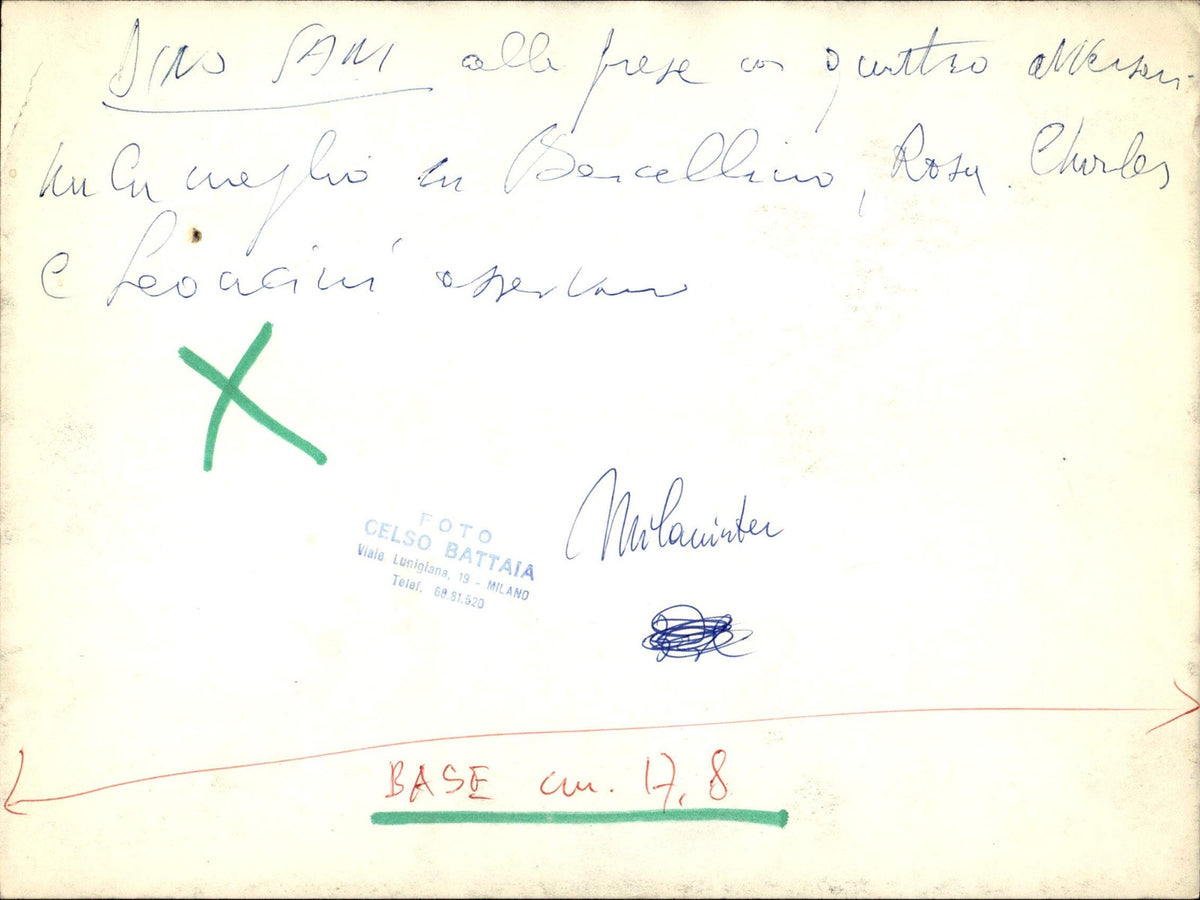 DINO SANI alle prese con quattro avversari
meglio Bercellino, Rosa. Charles
e Leoncini osservano
FOTO
CELSO BATTAIA
Viale Lunigiana, 19 - MILANO
Telef. 68.81.520
Milaninter
BASE cm. 17,8